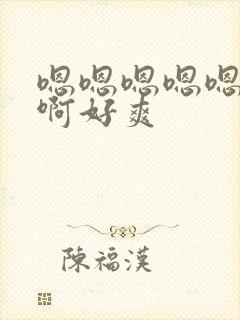 嗯嗯嗯嗯嗯
啊好爽
陳福漢